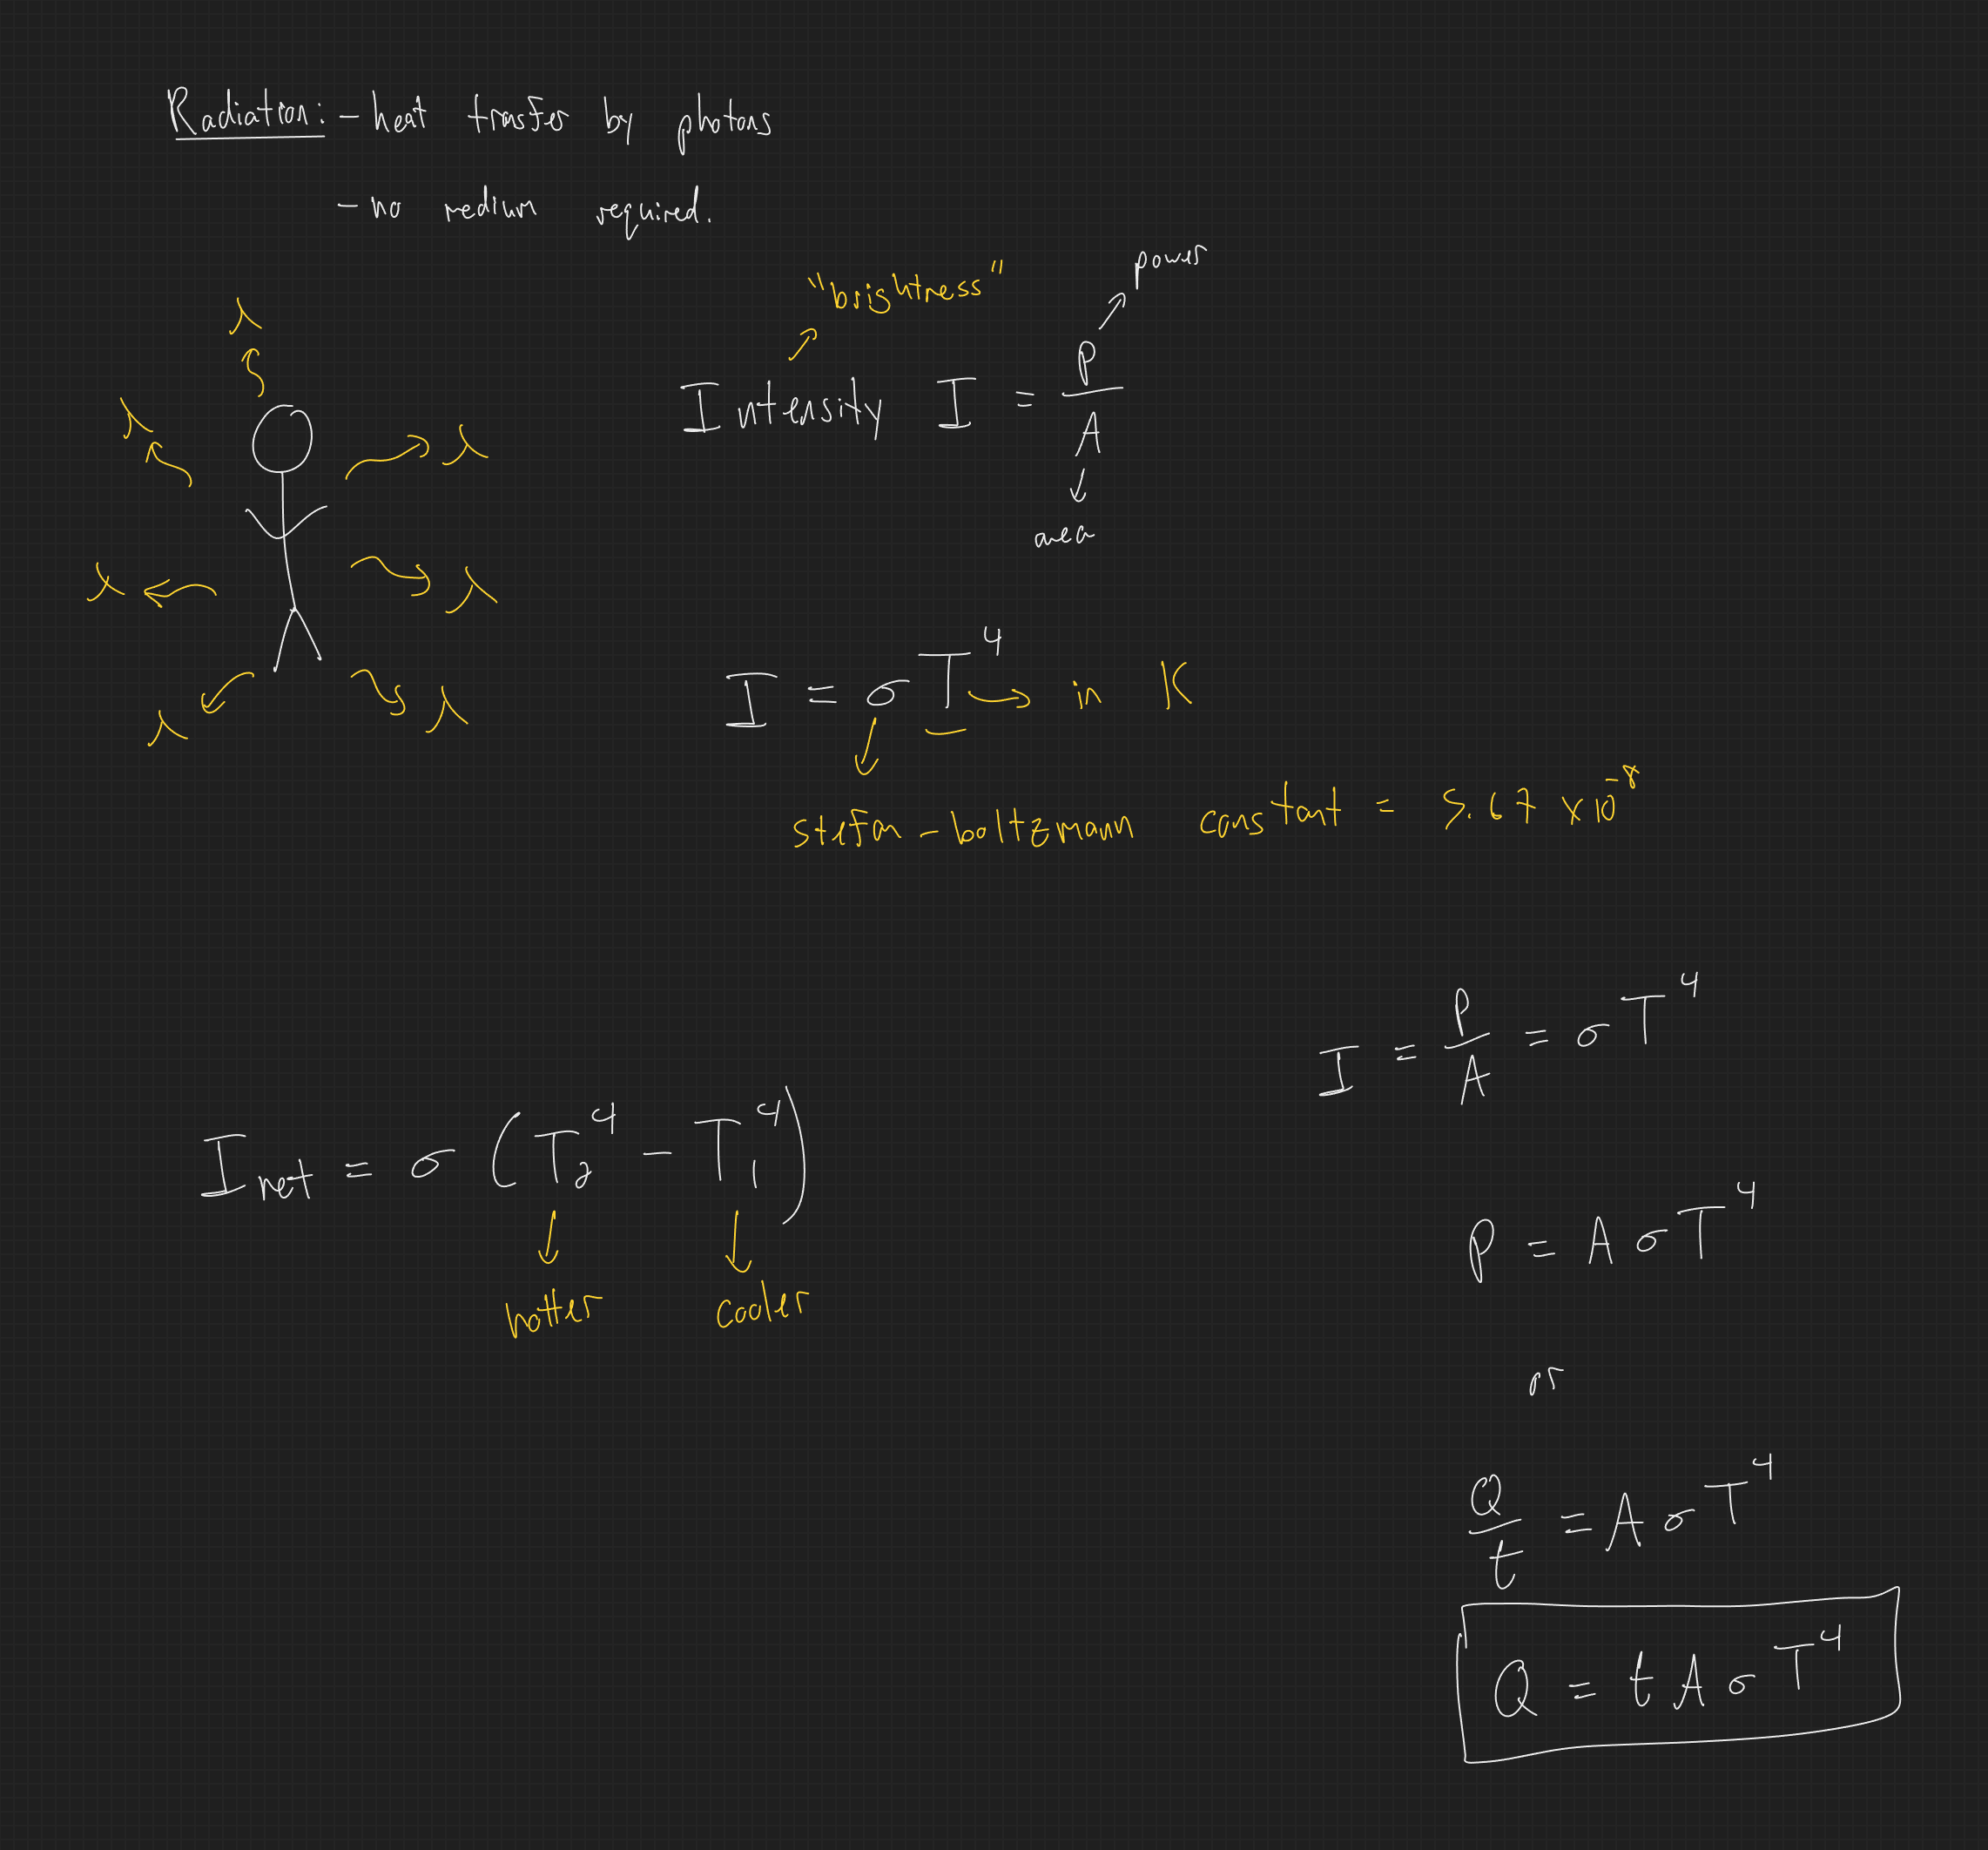 Radiation: - heat transfer by photons
- no medium required.
"brightness"
power
Intensity I = P/A
area
λ
λ
λ
λ
λ
λ
λ
I = σT⁴ → in K
stefan-boltzmann constant = 5.67 x10⁻⁸
I = P/A = σT⁴
I_net = σ (T₂⁴ - T₁⁴)
hotter cooler
P = AσT⁴
or
Q/t = AσT⁴
Q = tAσT⁴